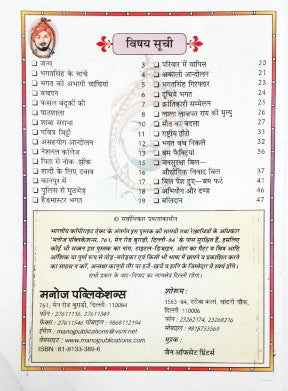 विषय सूची
❑ जन्म 3
❑ भगतसिंह के चाचे 4
❑ भगत की अभागी चाचियां 5
❑ बचपन 6
❑ फसल बंदूकों की 7
❑ पाठशाला 8
❑ शाबा सराभा 9
❑ पवित्र मिट्टी 10
❑ असहयोग आन्दोलन 11
❑ नेशनल कॉलेज 12
❑ पिता से नोक-झोंक 13
❑ शादी के लिए दबाव 15
❑ कानपुर में 16
❑ पुलिस से मुठभेड़ 18
❑ हैडमास्टर भगत 19
❑ परिवार में वापिस 20
❑ अकाली आन्दोलन 21
❑ भगतसिंह गिरफ्तार 23
❑ दूधिये भगत 24
❑ क्रांतिकारी सम्मेलन 25
❑ लाला लाजपत राय की मृत्यु 26
❑ मौत का बदला 27
❑ राष्ट्रीय हीरो 31
❑ भगत बच निकले 32
❑ बम फैक्ट्रियां 36
❑ जनसुरक्षा बिल—
औद्योगिक विवाद बिल 41
❑ बिल पेश हुए—बम फटे 41
❑ अभियोग और दण्ड 46
❑ बलिदान 47
© सर्वाधिकार प्रकाशकाधीन
भारतीय कॉपीराइट ऐक्ट के अंतर्गत इस पुस्तक की सामग्री तथा रेखाचित्रों के अधिकार
'मनोज पब्लिकेशन्स, 761, मेन रोड बुराड़ी, दिल्ली-84' के पास सुरक्षित हैं, इसलिए
कोई भी सज्जन इस पुस्तक का नाम, टाइटल-डिजाइन, अंदर का मैटर व चित्र आदि
आंशिक या पूर्ण रूप से तोड़-मरोड़कर एवं किसी भी भाषा में छापने व प्रकाशित करने
का साहस न करें, अन्यथा कानूनी तौर पर हर्जे-खर्चे व हानि के जिम्मेदार वे स्वयं होंगे।
सभी प्रकार के वाद-विवाद का न्यायक्षेत्र दिल्ली रहेगा।
मनोज पब्लिकेशन्स
761, मेन रोड बुराड़ी, दिल्ली-110084
फोन : 27611116, 27611349
फैक्स : 27611546 मोबाइल : 9868112194
ई-मेल : manojpublications@vsnl.net
वेबसाइट : www.manojpublications.com
ISBN : 81-8133-389-6
शोरूम :
1583-84, दरीबा कलां, चांदनी चौक,
दिल्ली-110006
फोन : 23262174, 23268216
मोबाइल : 9818753569
मुद्रक :
जैन ऑफसेट प्रिंटर्स